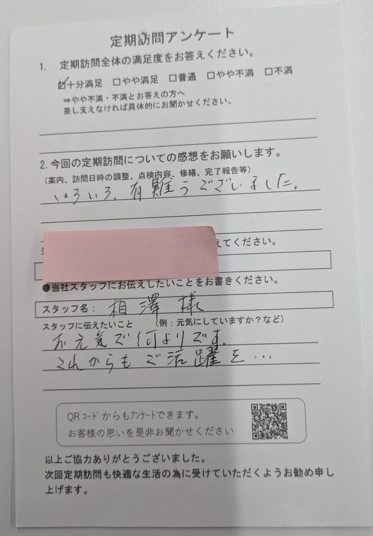 定期訪問アンケート
1. 定期訪問全体の満足度をお答えください。
☑十分満足 □やや満足 □普通 □やや不満 □不満
⇒やや不満・不満とお答えの方へ
差し支えなければ具体的にお聞かせください。
2. 今回の定期訪問についての感想をお願いします。
(案内、訪問日時の調整、点検内容、修繕、完了報告等)
いろいろ、有難うございました。
えてください。
●当社スタッフにお伝えしたいことをお書きください。
スタッフ名: 相澤様
スタッフに伝えたいこと (例:元気にしていますか?など)
お元気で何よりです。
これからもご活躍を…
QRコードからもアンケートできます。
お客様の思いを是非お聞かせください
以上ご協力ありがとうございました。
次回定期訪問も快適な生活の為に受けていただくようお勧め申し
上げます。